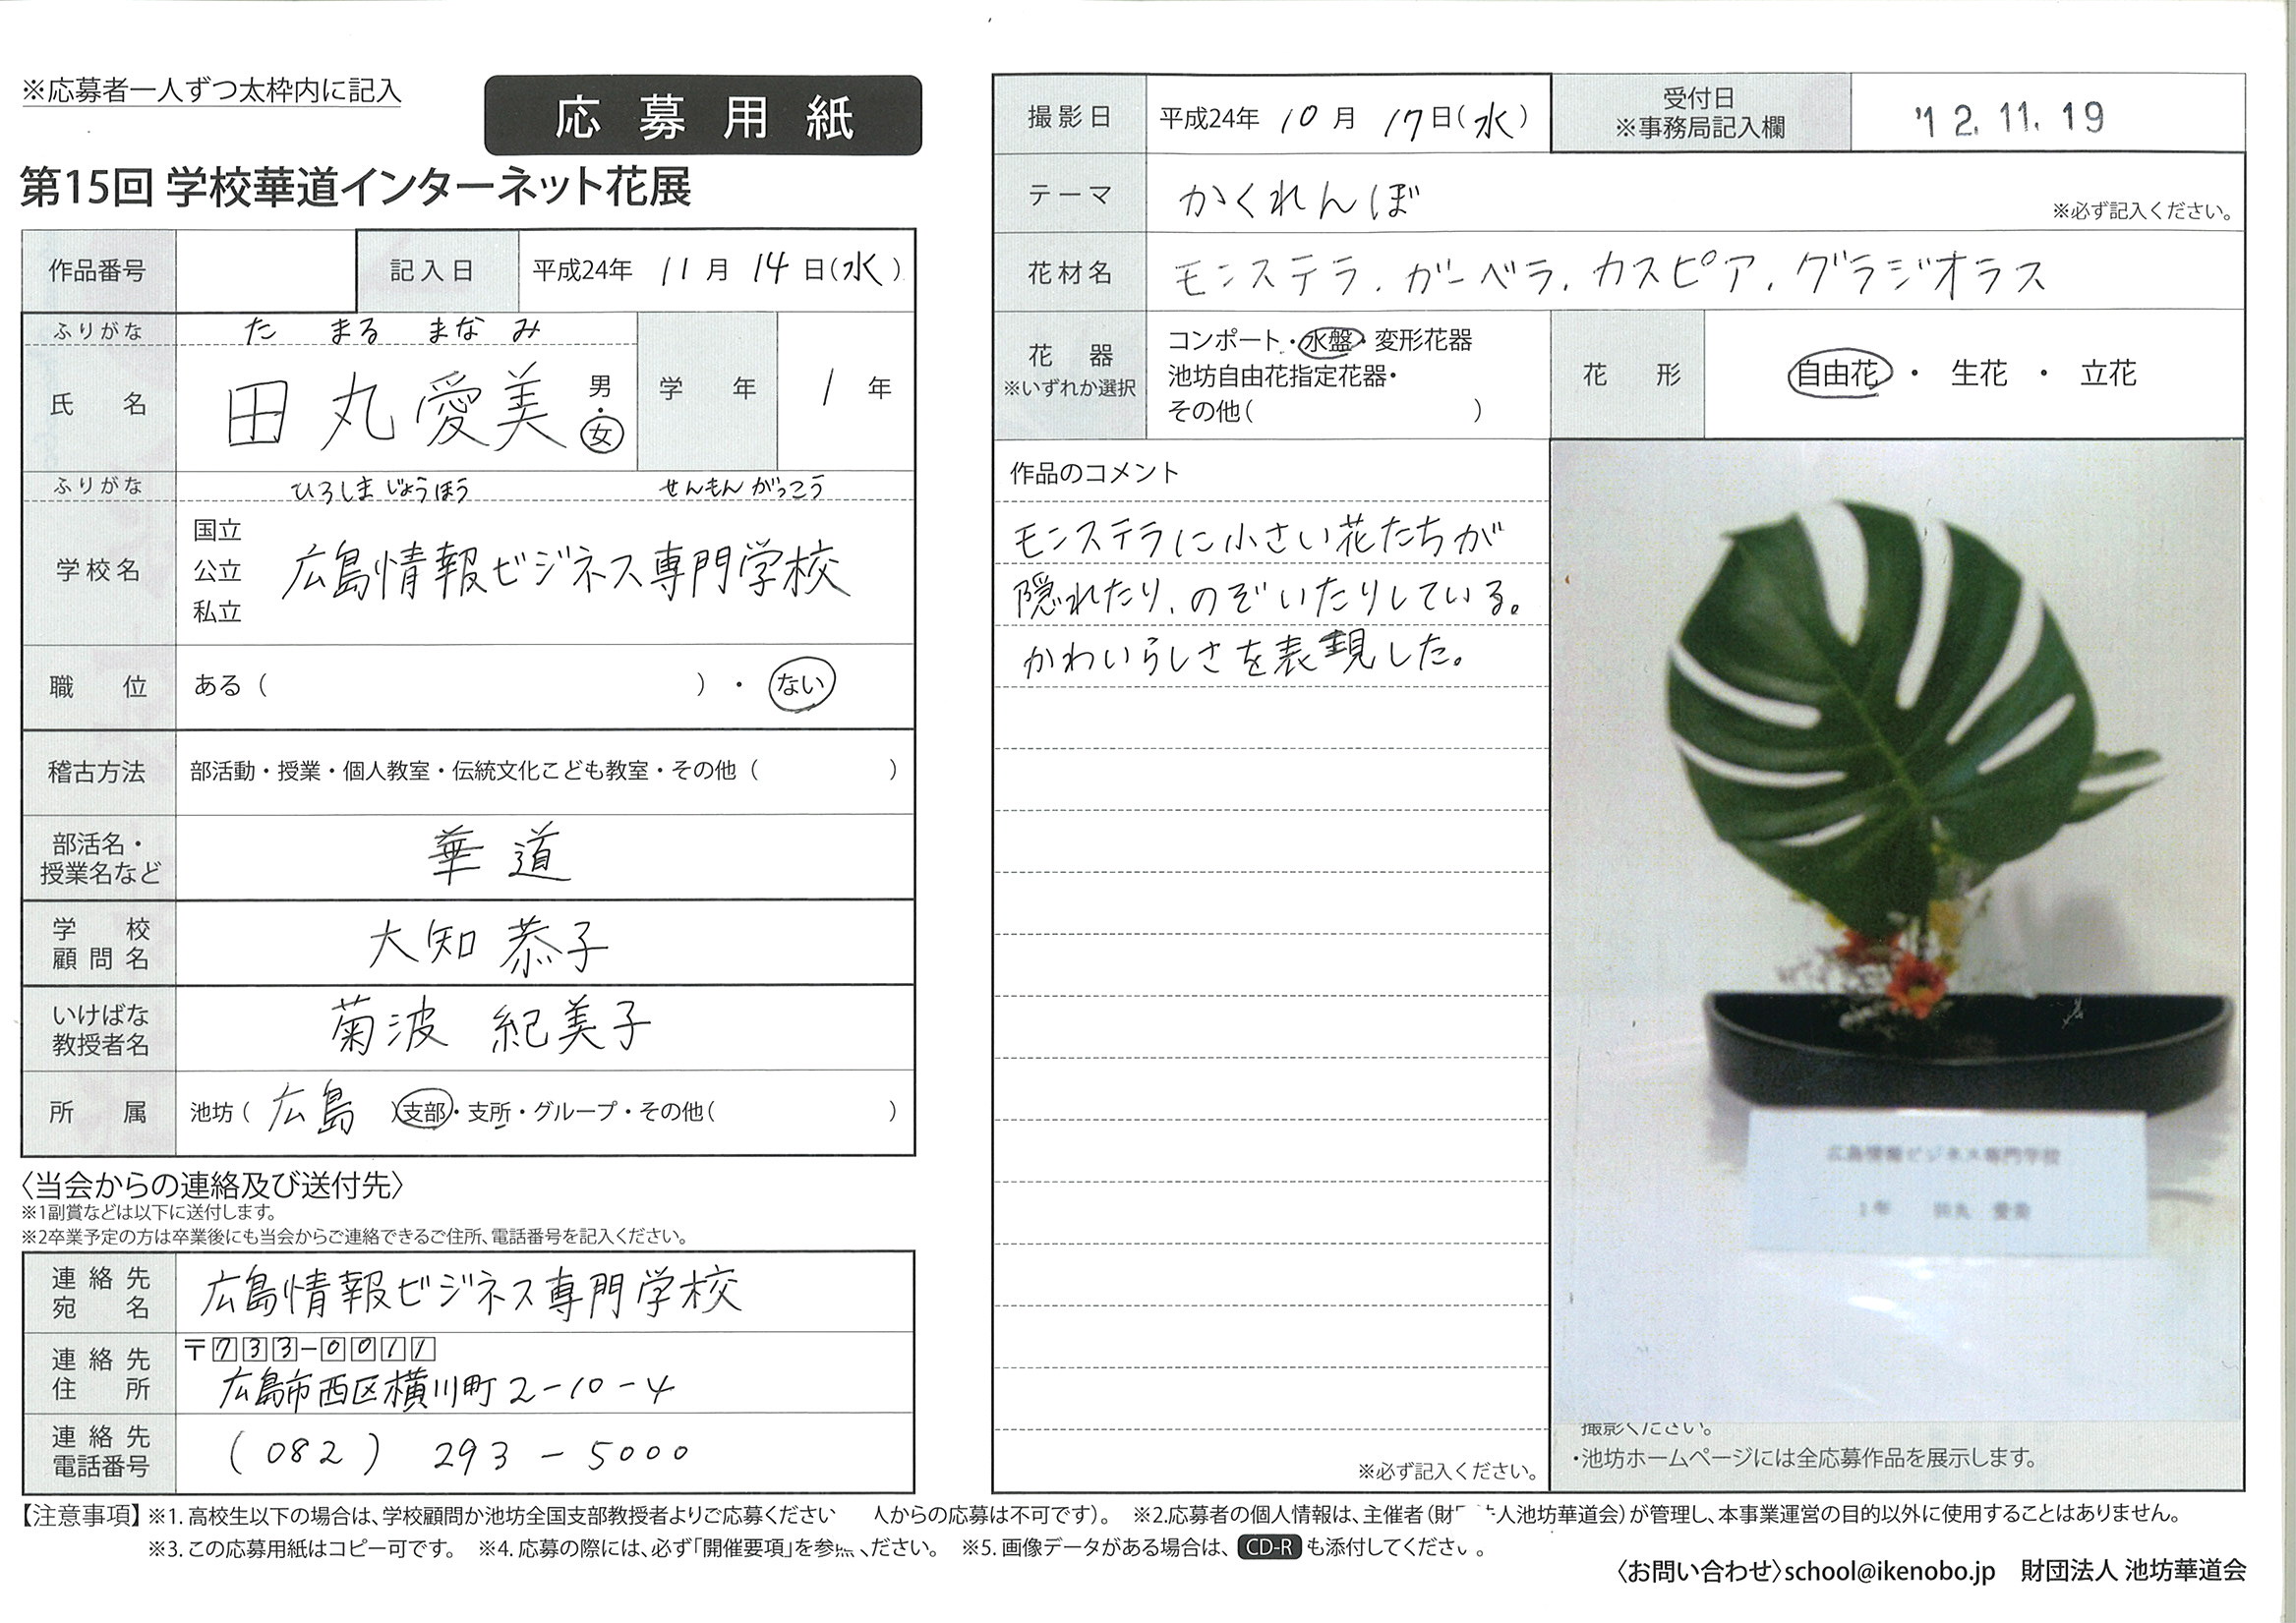 ※応募者一人ずつ太枠内に記入
応募用紙
第15回 学校華道インターネット花展
作品番号
記入日 平成24年 11月 14日(水)
ふりがな た まる まな み
氏名 田丸愛美 男・女
学年 1年
ふりがな ひろしま じょうほう せんもん がっこう
学校名 国立 公立 私立 広島情報ビジネス専門学校
職位 ある( )・ない
稽古方法 部活動・授業・個人教室・伝統文化こども教室・その他( )
部活名・授業名など 華道
学校顧問名 大知 恭子
いけばな教授者名 菊波 紀美子
所属 池坊(広島)支部・支所・グループ・その他( )
〈当会からの連絡及び送付先〉
※1副賞などは以下に送付します。
※2卒業予定の方は卒業後にも当会からご連絡できるご住所、電話番号を記入ください。
連絡先宛名 広島情報ビジネス専門学校
連絡先住所 〒733-0011
広島市西区横川町2-10-4
連絡先電話番号 (082) 293-5000
撮影日 平成24年 10月 17日(水)
受付日 ※事務局記入欄 '12.11.19
テーマ かくれんぼ ※必ず記入ください。
花材名 モンステラ.ガーベラ.カスピア.グラジオラス
花器 ※いずれか選択
コンポート・水盤・変形花器
池坊自由花指定花器・
その他( )
花形 自由花・生花・立花
作品のコメント
モンステラに小さい花たちが
隠れたり、のぞいたりしている。
かわいらしさを表現した。
※必ず記入ください。
広島情報ビジネス専門学校
1年 田丸 愛美
撮影ください。
・池坊ホームページには全応募作品を展示します。
【注意事項】※1.高校生以下の場合は、学校顧問か池坊全国支部教授者よりご応募ください 人からの応募は不可です)。 ※2.応募者の個人情報は、主催者(財 人池坊華道会)が管理し、本事業運営の目的以外に使用することはありません。
※3.この応募用紙はコピー可です。 ※4.応募の際には、必ず「開催要項」を参 ださい。 ※5.画像データがある場合は、CD-Rも添付してください。
〈お問い合わせ〉school@ikenobo.jp 財団法人 池坊華道会